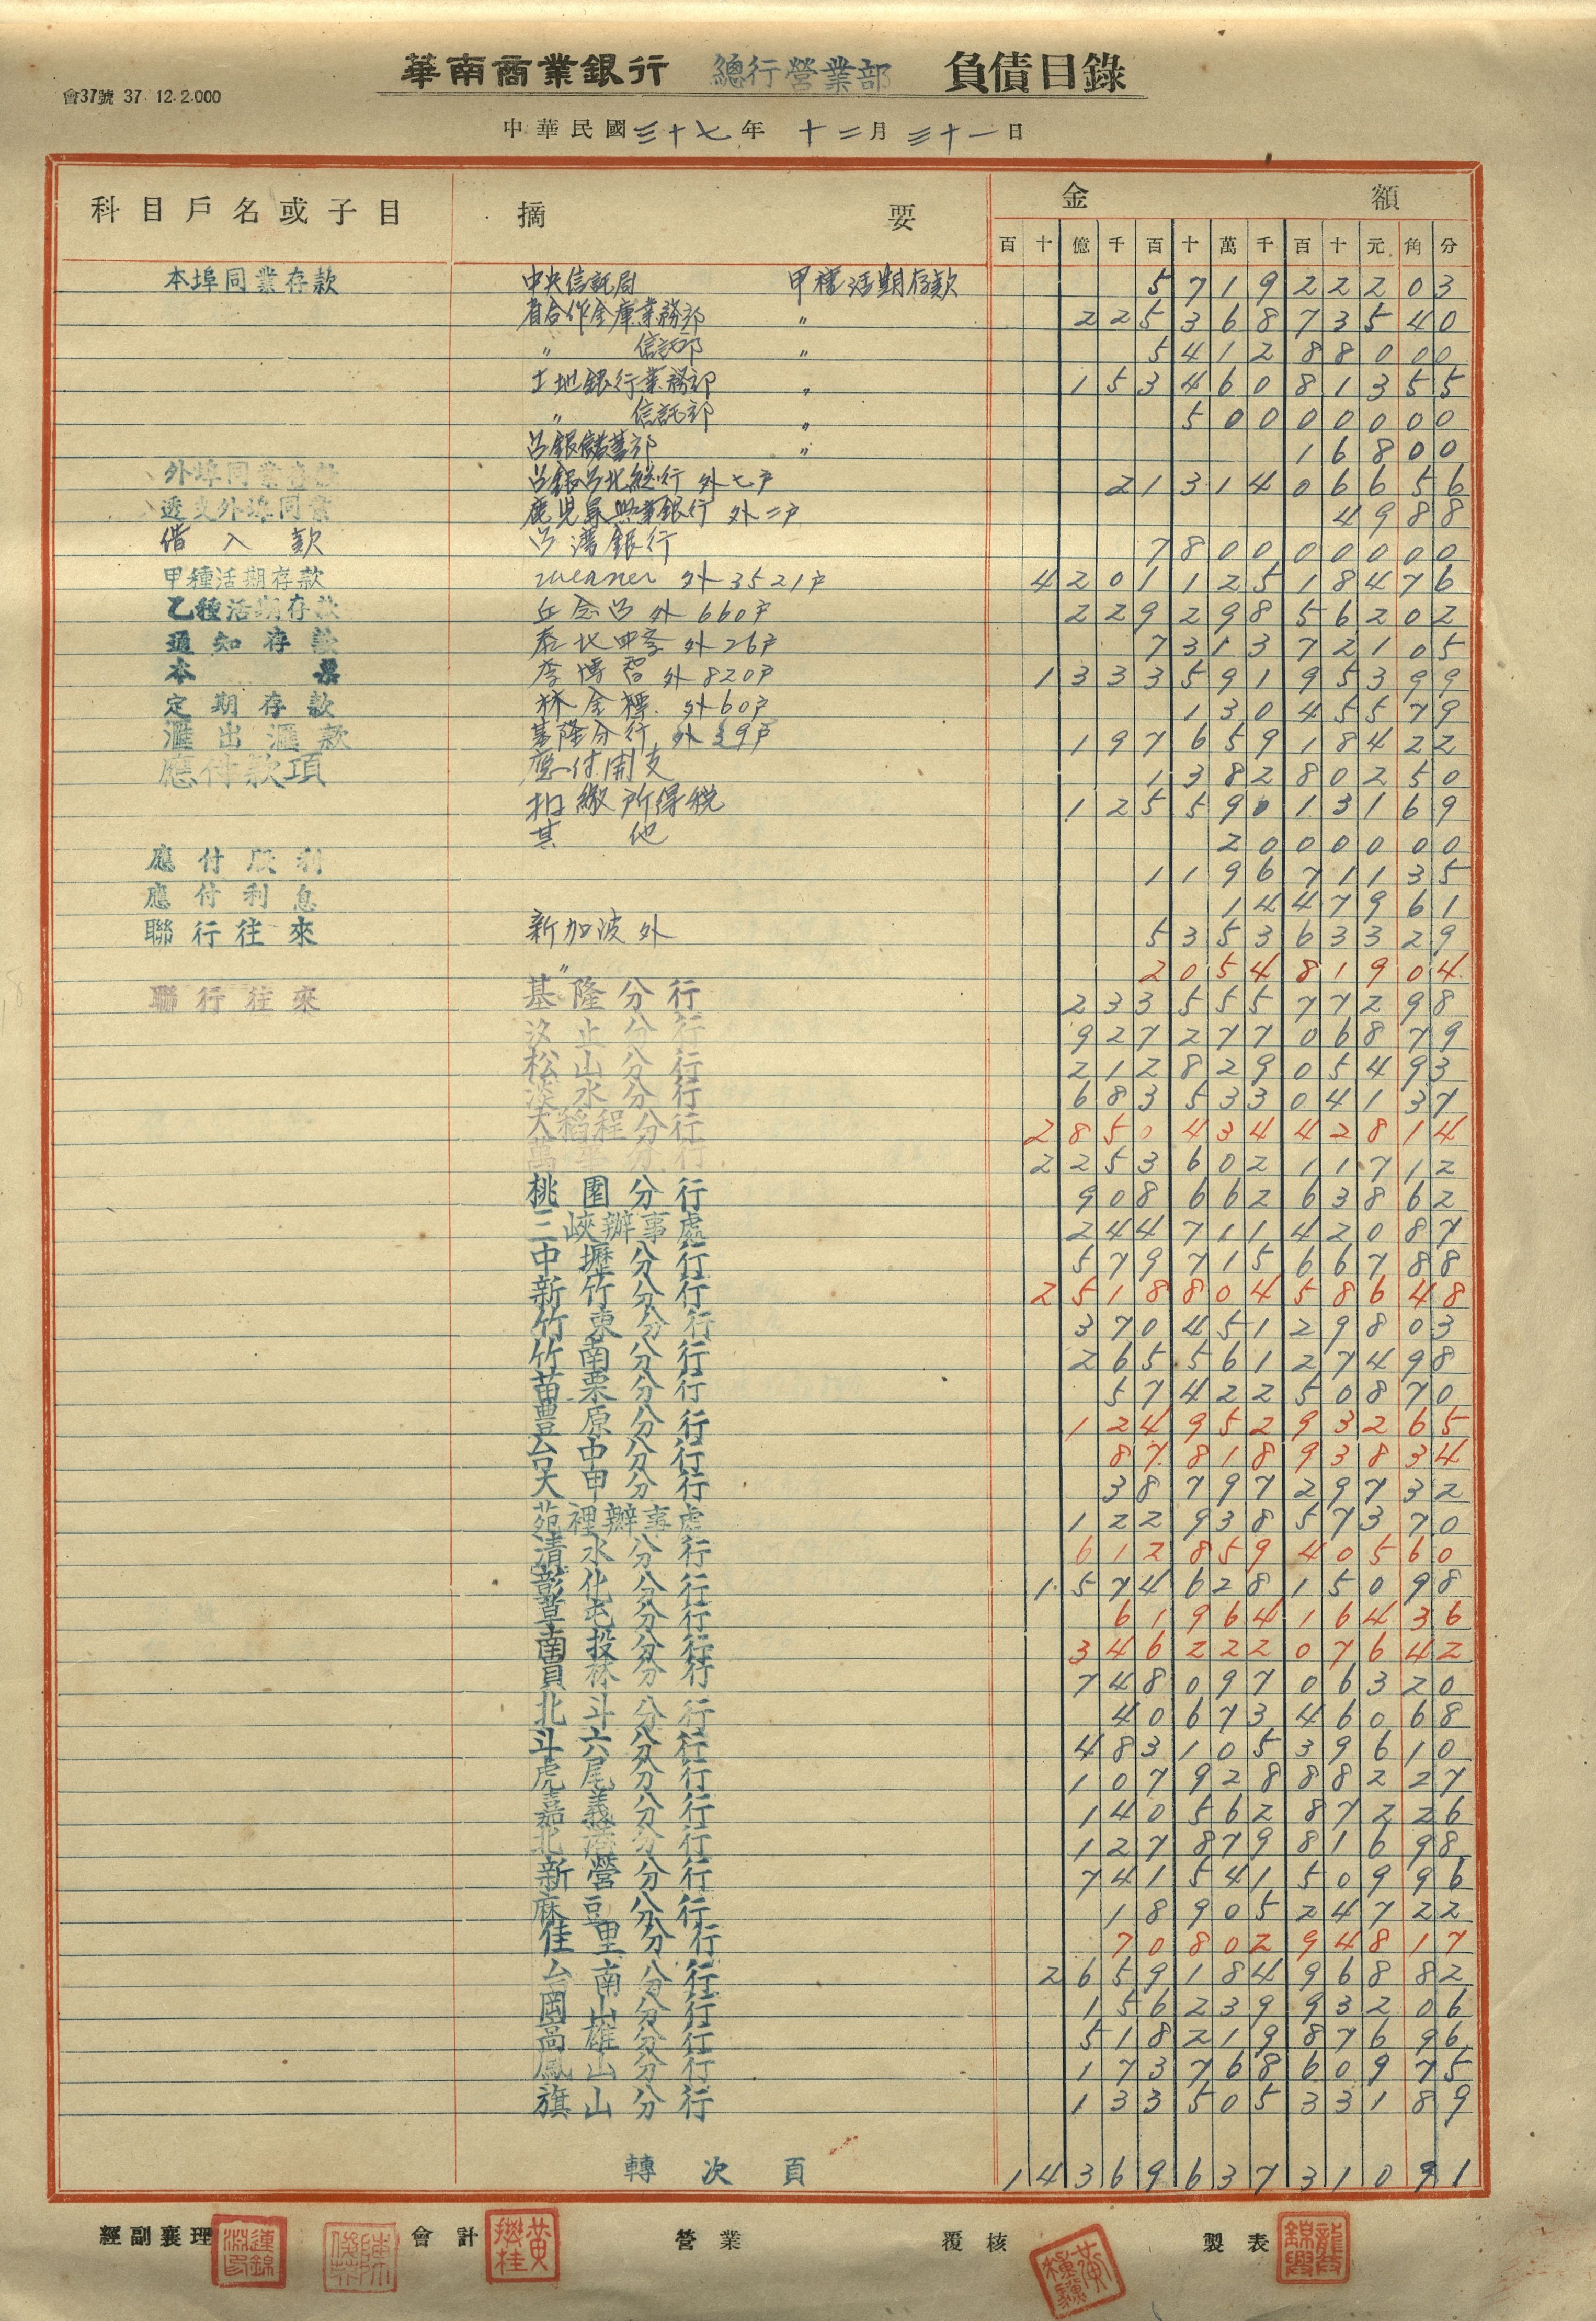 華南商業銀行 總行營業部 負債目錄
會37號 37.12.2.000
中華民國三十七年 十二月 三十一日
科目戶名或子目 摘要 金額
百 十 億 千 百 十 萬 千 百 十 元 角 分
本埠同業存款 中央信託局 甲種活期存款 5 7 1 9 2 2 2 0 3
省合作金庫業務部 〃 2 2 5 3 6 8 7 3 5 4 0
〃 信託部 〃 5 4 1 2 8 8 0 0 0
土地銀行業務部 〃 1 5 3 4 6 0 8 1 3 5 5
〃 信託部 〃 5 0 0 0 0 0 0 0
台銀儲蓄部 〃 1 6 8 0 0
外埠同業存款 台銀台北總行 外七戶 2 1 3 1 4 0 6 6 5 6
透支外埠同業 鹿児島興業銀行 外二戶 4 9 8 8
借入款 台灣銀行 7 8 0 0 0 0 0 0 0
甲種活期存款 外3521戶 4 2 0 1 1 2 5 1 8 4 7 6
乙種活期存款 丘念台 外660戶 2 2 9 2 9 8 5 6 2 0 2
通知存款 外26戶 7 3 1 3 7 2 1 0 5
本票 李博智 外820戶 1 3 3 3 5 9 1 9 5 3 9 9
定期存款 林金標 外60戶 1 3 0 4 5 5 7 9
滙出滙款 基隆分行 外39戶 1 9 7 6 5 9 1 8 4 2 2
應付款項 應付開支 1 3 8 2 8 0 2 5 0
扣繳所得稅 1 2 5 5 9 0 1 3 1 6 9
其他 2 0 0 0 0 0 0
應付股利 1 1 9 6 7 1 1 3 5
應付利息 1 4 4 7 9 6 1
聯行往來 新加波外 5 3 5 3 6 3 3 2 9
〃 2 0 5 4 8 1 9 0 4
聯行往來 基隆分行 2 3 3 5 5 5 7 7 2 9 8
汐止分行 9 2 7 2 7 7 0 6 8 7 9
松山分行 2 1 2 8 2 9 0 5 4 9 3
淡水分行 6 8 3 5 3 3 0 4 1 3 7
大稻埕分行 2 8 5 0 4 3 4 4 2 8 1 4
萬華分行 2 2 5 3 6 0 2 1 1 7 1 2
桃園分行 9 0 8 6 6 2 6 3 8 6 2
三峽辦事處 2 4 4 7 1 1 4 2 0 8 7
中壢分行 5 7 9 7 1 5 6 6 7 8 8
新竹分行 2 5 1 8 8 0 4 5 8 6 4 8
竹東分行 3 7 0 4 5 1 2 9 8 0 3
竹南分行 2 6 5 5 6 1 2 7 4 9 8
苗栗分行 5 7 4 2 2 5 0 8 7 0
豐原分行 1 2 4 9 5 2 9 3 2 6 5
台中分行 8 7 8 1 8 9 3 8 3 4
大甲分行 3 8 7 9 7 2 9 7 3 2
苑裡辦事處 1 2 2 9 3 8 5 7 3 7 0
清水分行 6 1 2 8 5 9 4 0 5 6 0
彰化分行 1 5 7 4 6 2 8 1 5 0 9 8
草屯分行 6 1 9 6 4 1 6 4 3 6
南投分行 3 4 6 2 2 2 0 7 6 4 2
員林分行 7 4 8 0 9 7 0 6 3 2 0
北斗分行 4 0 6 7 3 4 6 0 6 8
斗六分行 4 8 3 1 0 5 3 9 6 1 0
虎尾分行 1 0 7 9 2 8 8 8 2 2 7
嘉義分行 1 4 0 5 6 2 8 7 2 2 6
北港分行 1 2 7 8 7 9 8 1 6 9 8
新營分行 7 4 1 5 4 1 5 0 9 9 6
麻豆分行 1 8 9 0 5 2 4 7 2 2
佳里分行 7 0 8 0 2 9 4 8 1 7
台南分行 2 6 5 9 1 8 4 9 6 8 8 2
岡山分行 1 5 6 2 3 9 9 3 2 0 6
高雄分行 5 1 8 2 1 9 8 7 6 9 6
鳳山分行 1 7 3 7 6 8 6 0 9 7 5
旗山分行 1 3 3 5 0 5 3 3 1 8 9
轉次頁 1 4 3 6 9 6 3 7 3 1 0 9 1
經副襄理 會計 黃樹桂 營業 覆核 製表